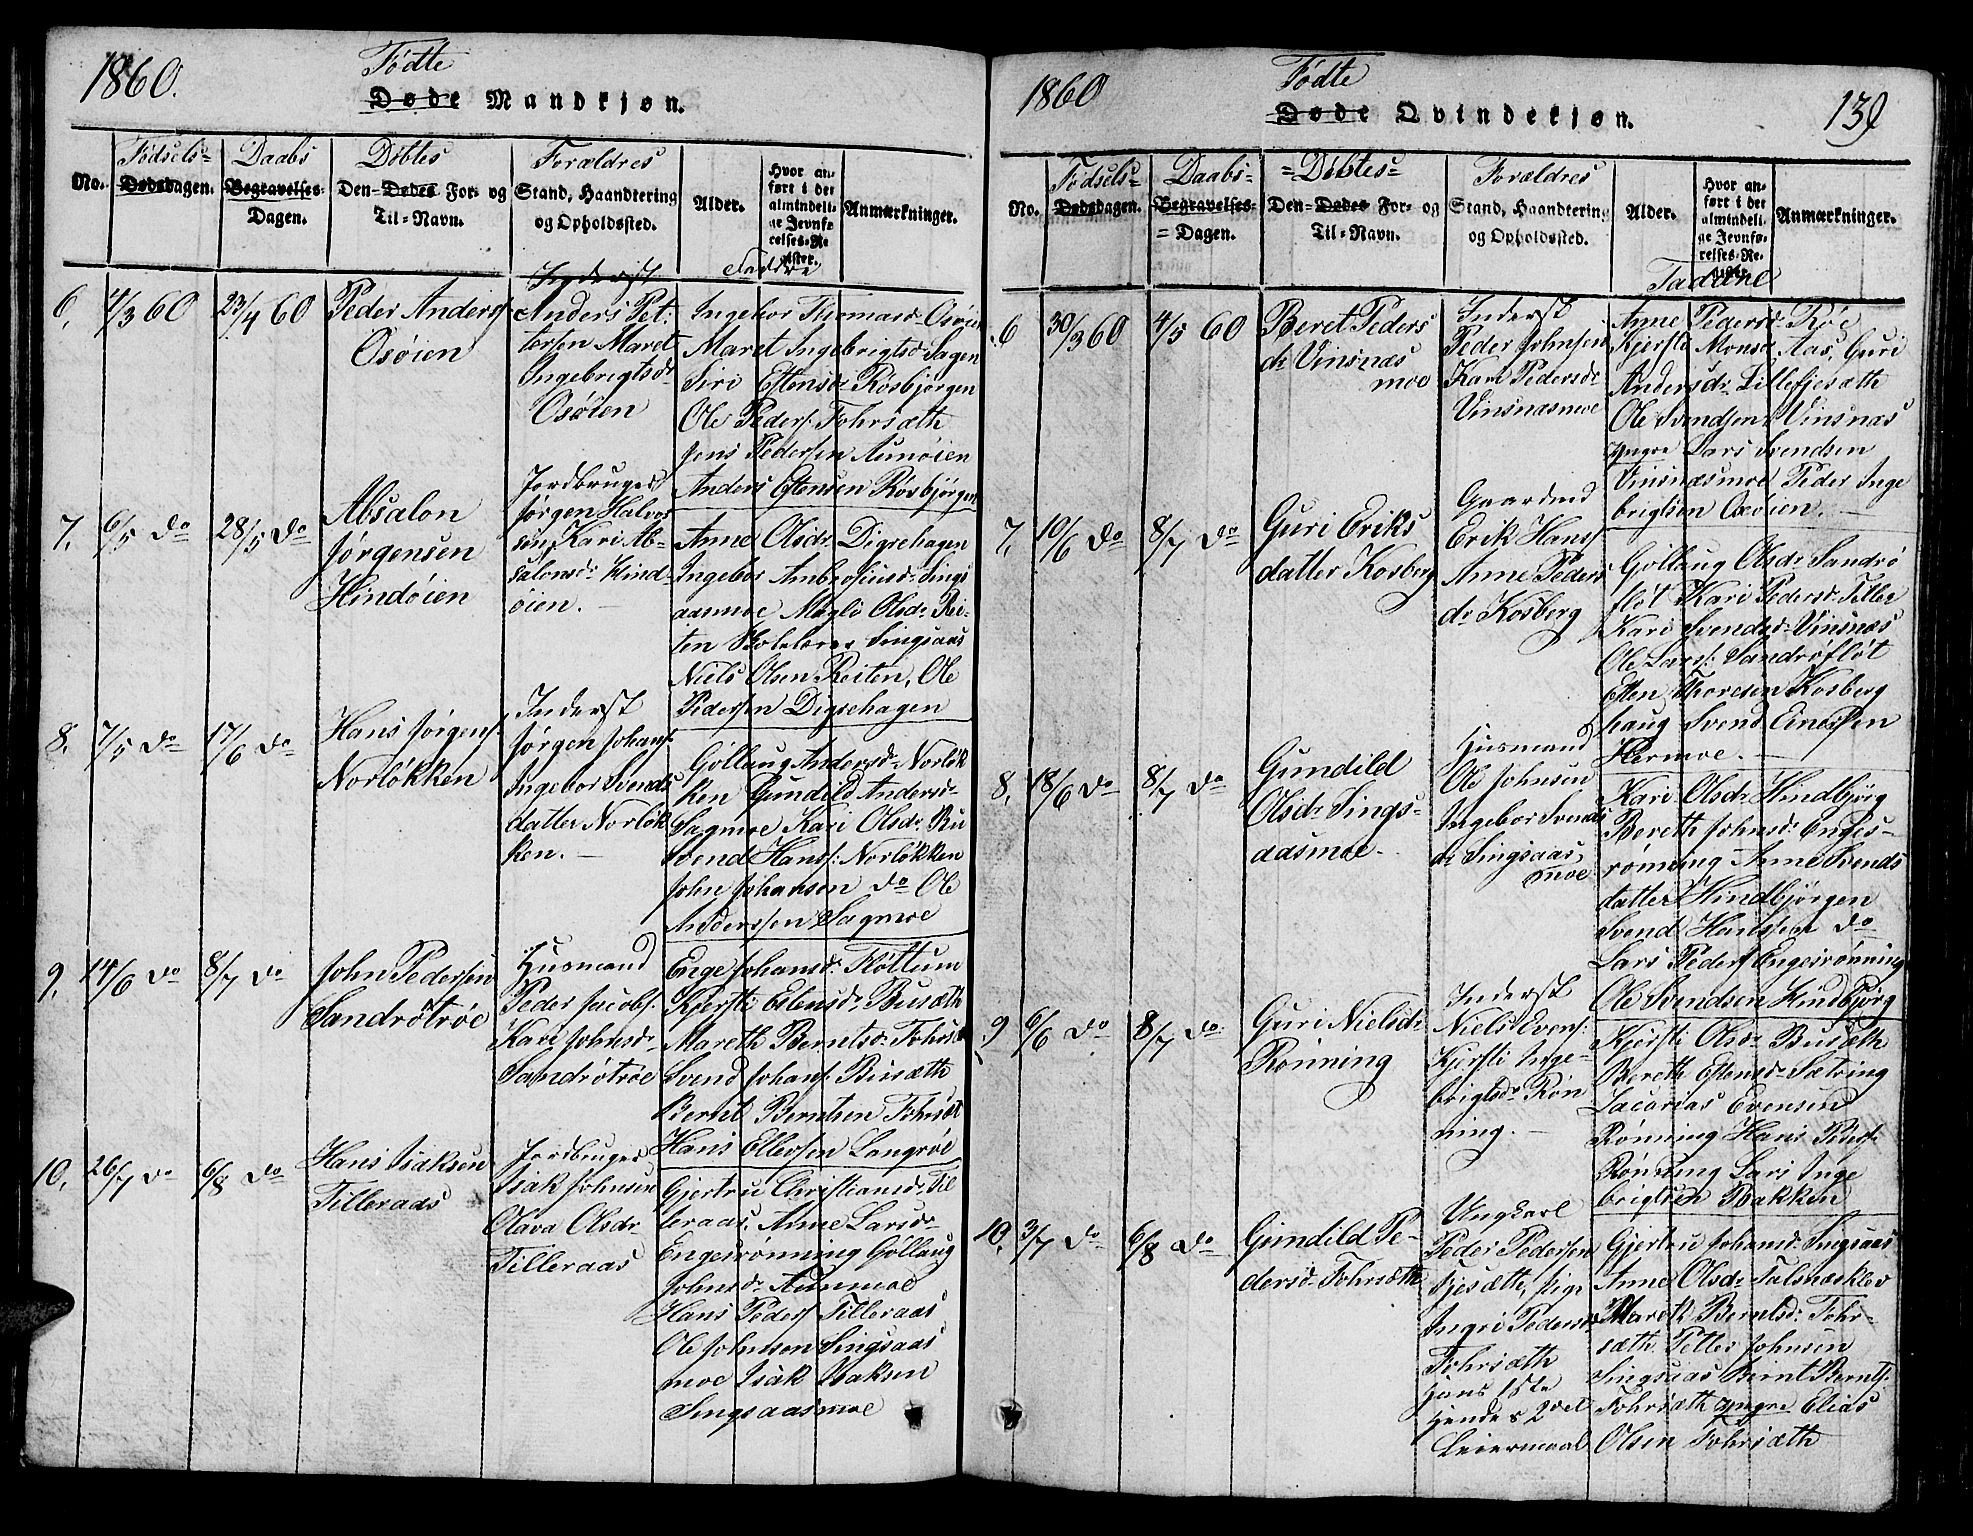 1860.
Fødte
Døde Mandkjøn.
No.
Fødsels=
Dødsdagen.
Daabs
Begravelses=
Dagen.
Døbtes
Den=Dødes For= og
Til=Navn.
Forældres
Stand, Haandtering
og Opholdssted.
Alder.
Hvor an=
ført i det
almindeli=
ge Jevnfø=
relses=Re=
gister.
Anmærkninger.
Faddre
6. 4/3 60 23/4 60
Peder Anders
Osøien
Inderst
Anders Pet
tersen Maret
Ingebrigtsdr
Osøien
Ingebor Thomasd. Osøien
Maret Ingebrigtsd. Sagen
Siri Estensdr Røsbjørgen
Ole Peders. Fohrsæth
Jens Pedersen Aunøien
Anders Estensen Røsbjørgen
7. 6/5 do 28/5 do
Absalon
Jørgensen
Hindøien
Jordbruger
Jørgen Halvor
sen, Kari Ab=
salonsdr Hind=
øien.
Anne Olsdr Digrehagen
Ingebor Ambrosiusd. Sings
aasmoe Magli Olsdr Rei=
ten Singsaas
Niels Olsen Reiten, Ole
Pedersen Digrehagen
8. 7/5 do 17/6 do
Hans Jørgens.
Norløkken
Inderst
Jørgen Johans.
Ingebor Svends
datter Norløk
ken.
Gollaug Andersd. Norløk
ken Gundild Andersd.
Sagmoe Kari Olsdr Bu
Svend Hans. Norløkken
John Johansen do Ole
Anderssen Sagmoe
9. 14/6 do 8/7 do
John Pedersen
Sandrøtrøe
Husmand
Peder Jacobs.
Kari Johnsd.
Sandrøtrøe
Enge Johansd. Fløttum
Kjersti Estensd. Busæth
Mareth Berntsd. Fohrsæ
Svend Johans. Busæth
Bernt Berntsen Fohrsæt
Hans Ellefsen Langrøe
10. 26/7 do 6/8 do
Hans Isaksen
Tilleraas
Jordbruger
Isak Johnsen
Olava Olsdr
Tilleraas
Gjertru Christiansd. Til
leraas. Anne Larsdr
Engesrønning Gollaug
Johnsd. Aunmoe
Hans Peders. Tilleraas
Ole Johnsen Singsaas
moe Isak Isaksen
Singsaasmoe
1860
Fødte
Døde Qvindekjøn.
139
No.
Fødsels=
Dødsdagen.
Daabs=
Begravelses=
=Dagen.
=Døbtes=
Den=Dødes For= og
Til=Navn.
Forældres
Stand, Haandtering
og Opholdssted.
Alder.
Hvor an=
ført i det
almindeli=
ge Jevnfø=
relses=Re=
gister.
Anmærkninger.
Faddrene
6 30/3 60 4/5 60
Beret Peders
dr Vinsnæs
moe
Inderst
Peder Johnsen
Kari Pedersdr
Vinsnæsmoe
Anne Pedersd. Røe
Kjersti Monsd. Aas, Guri
Andersdr Lillefjesæth
Ole Svendsen Vinsnæs
yngre Lars Svendsen
Vinsnæsmoe Peder Inge
brigtsen Osøien.
7. 10/6 do 8/7 do
Guri Eriks
datter Kosberg
Gaardmd
Erik Hans.
Anne Peders
dr Kosberg
Gollaug Olsdr Sandrø
fløt Kari Pedersd. Tiller
Kari Svendsd. Vinsnæs
Ole Lars. Sandrøfløt
Esten Thoresen Kosberg
haug Svend Einersen
Hermoe.
8. 18/6 do 8/7 do
Gundild
Olsdr Sings=
aasmoe.
Husmand
Ole Johnsen
Ingebor Svends
dr Singsaas
moe
Kari Olsdr Hindbjørg
Bereth Johnsd. Enges=
rønning Anne Svends
datter Hindbjørgen
Svend Hansen do
Lars Peders. Engesrønning
Ole Svendsen Hindbjørg
9. 6/6 do 8/7 do
Guri Nielsdr
Rønning
Inderst
Niels Evens.
Kjersti Inge=
brigtsdr Røn
ning.
Kjersti Olsdr Busæth
Bereth Estensd. Sætring
Zacarias Evensen
Rønning Hans Peders.
Rønning Lars Inge
brigtsen Bakken
10. 3/7 do 6/8 do
Gundild Pe=
dersd. Fohrsæth
Ungkarl
Peder Pedersen
Fjesæth, pige
Ingri Pedersdr
Fohrsæth
Hans 1ste
Hendes 2det
Leiermaal
Gjertru Johansd. Singsaas
Anne Olsdr Talsnæsklev
Mareth Berntsd. Fohr=
sæth Petter Johnsen
Singsaas Bernt Bernts.
Fohrsæth yngre Elias
Olsen Fohrsæth